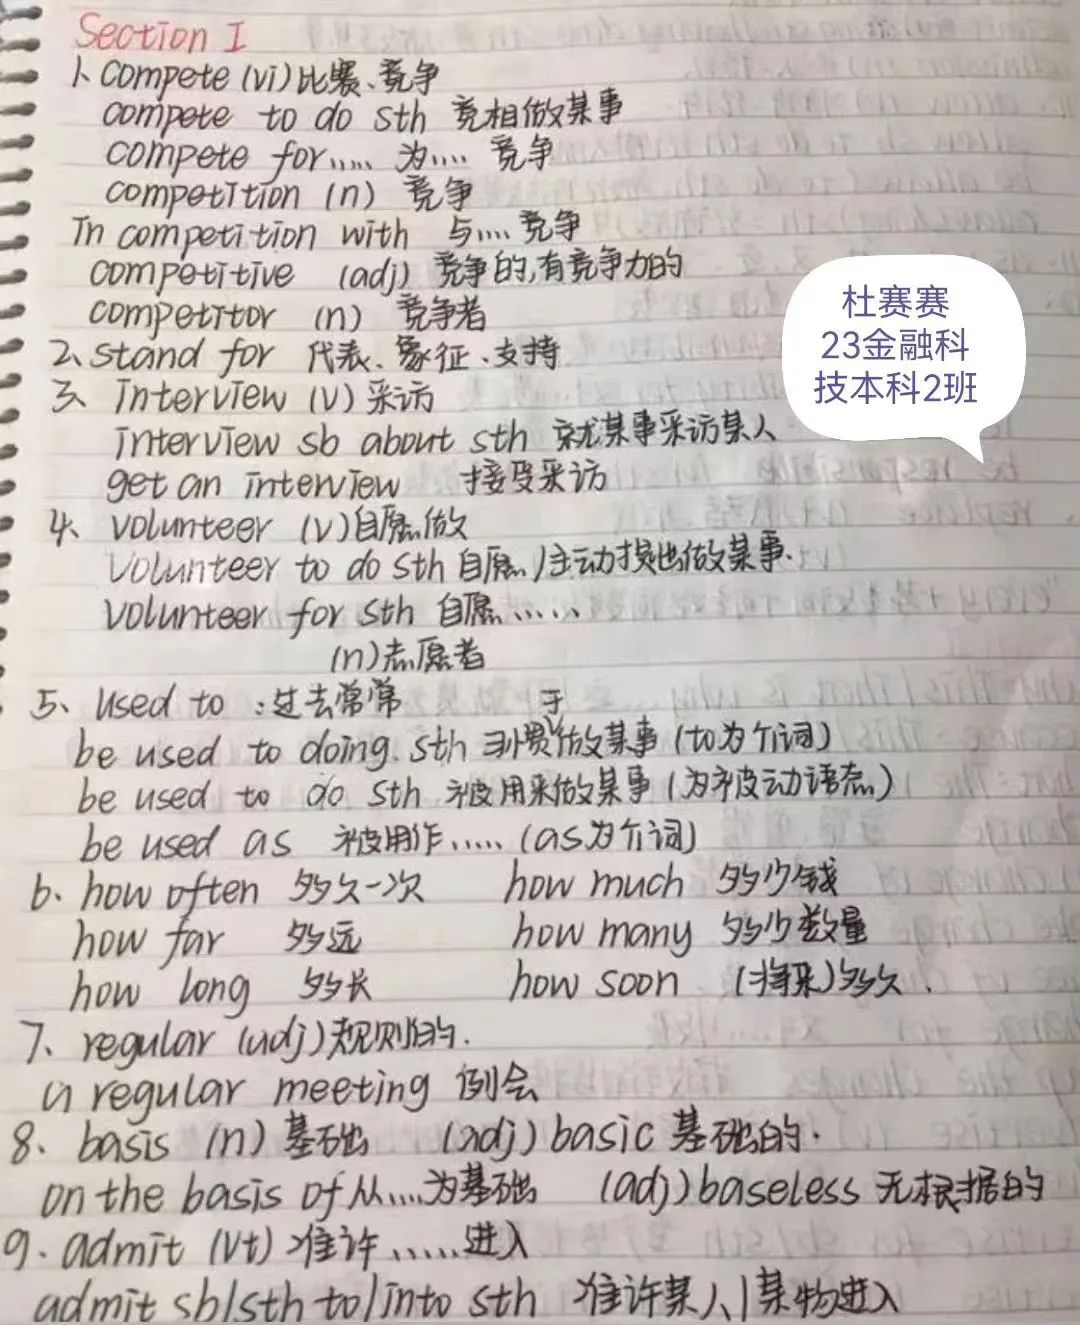 Section I
1、compete (vi) 比赛、竞争
compete to do sth 竞相做某事
compete for..... 为.... 竞争
competition (n) 竞争
In competition with 与.... 竞争
competitive (adj) 竞争的,有竞争力的
competitor (n) 竞争者
2、stand for 代表、象征、支持
3、interview (v) 采访
interview sb about sth 就某事采访某人
get an interview 接受采访
4、volunteer (v) 自愿做
Volunteer to do sth 自愿/主动提出做某事.
volunteer for sth 自愿......
(n) 志愿者
5、used to :过去常常
be used to doing sth 习惯于做某事 (to为介词)
be used to do sth 被用来做某事 (为被动语态)
be used as 被用作..... (as为介词)
6、how often 多久一次 how much 多少钱
how far 多远 how many 多少数量
how long 多长 how soon (将来)多久.
7、regular (adj) 规则的.
a regular meeting 例会
8、basis (n) 基础 (adj) basic 基础的.
on the basis of 从....为基础 (adj) baseless 无根据的
9.admit (vt) 准许......进入
admit sb/sth to/into sth 准许某人/某物进入
杜赛赛
23金融科
技本科2班